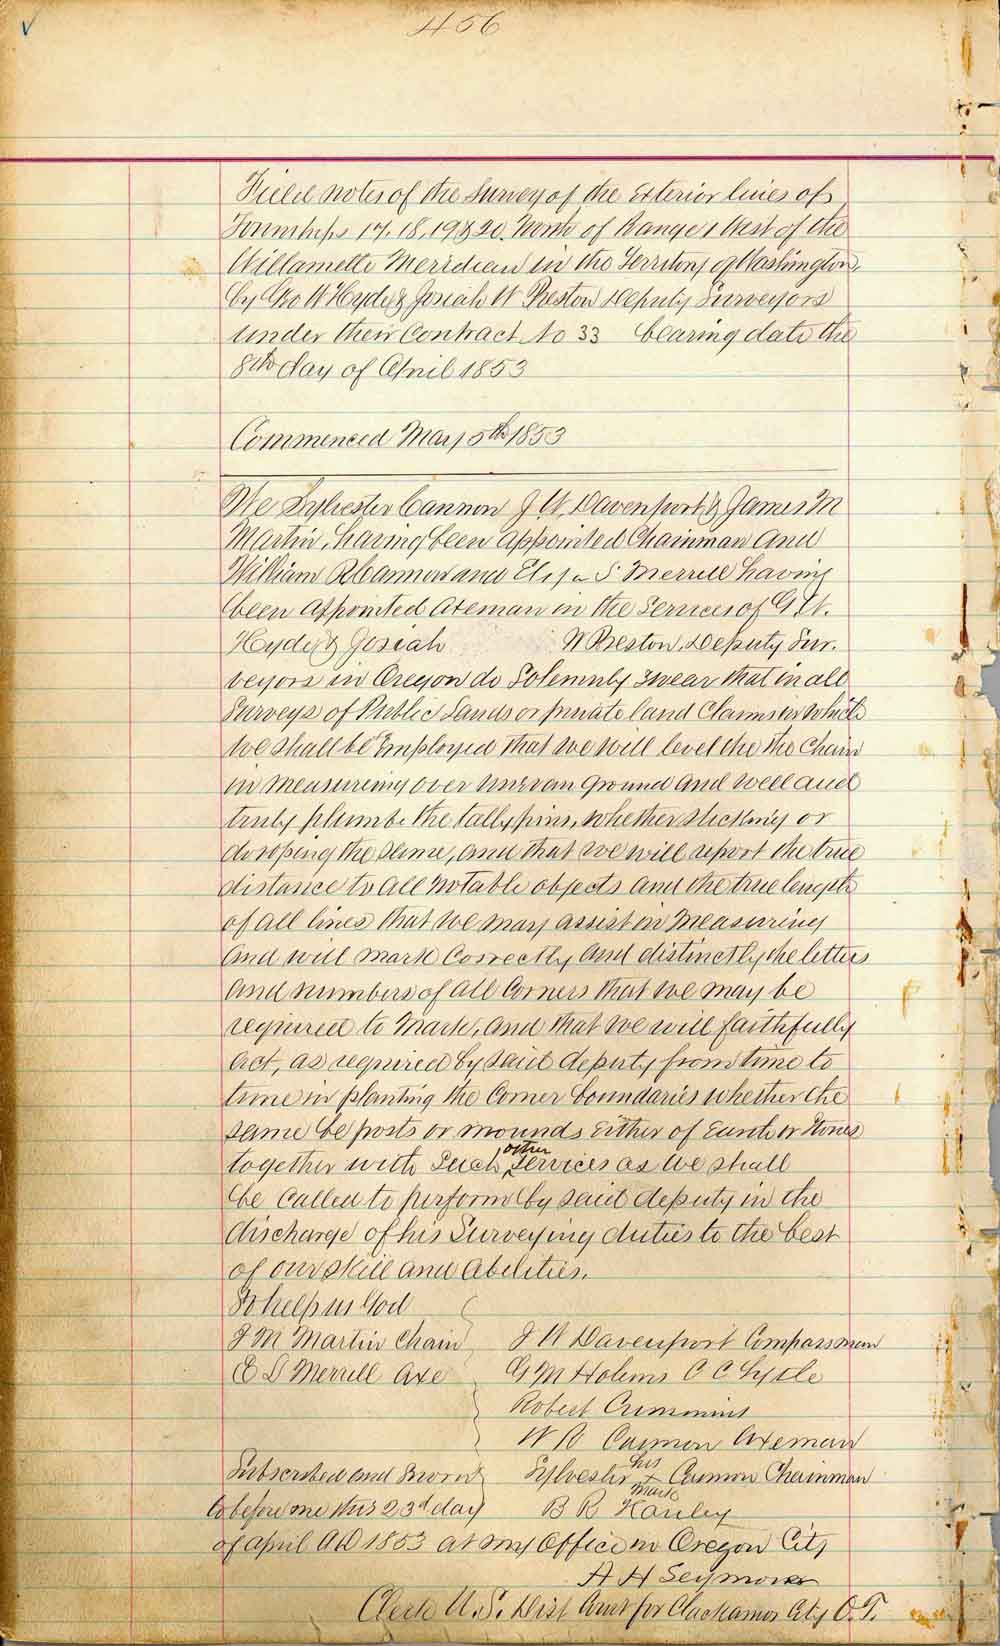 456
Field notes of the Survey of the Exterior lines of
Townships 17, 18, 19 & 20 North of Range 1 West of the
Willamette Meridian in the Territory of Washington,
by Geo W Hyde & Josiah W Preston Deputy Surveyors
under their Contract No 33 bearing date the
8th day of April 1853
Commenced May 5th 1853
We Sylvester Cannon J. W. Davenport, & James M
Martin, having been appointed Chainman and
William R Cannon and S Merrill having
been appointed axeman in the Services of G W.
Hyde & Josiah W Preston, Deputy Sur.
veyors in Oregon do Solemnly swear that in all
Surveys of Public Lands or private land Claims in which
we shall be Employed that we will level the the Chain
in measureing over uneven ground and well and
truly plumb the tally pins, whether sticking or
dropping the same, and that we will report the true
distance to all notable objects and the true length
of all lines that we may assist in measuring
and will mark correctly and distinctly the letters
and numbers of all Corners that we may be
required to mark, and that we will faithfully
act, as required by said deputy from time to
time in planting the Corner boundaries whether the
same be posts or mounds Either of Earth or Stones
together with Such other services as we shall
be called to perform by said deputy in the
discharge of his Surveying duties to the best
of our skill and abilities.
So help us God
J M Martin Chain J W Davenport Compassman
E S Merrill Axe G M Holems C C Lytle
Robert Cummins
W R Cannon Axeman
Subscribed and Sworn Sylvester his x mark Cannon Chainman
to before me this 23d day B R Hanley
of april AD 1853 at my Office in Oregon City
A H Seymour
Clerk U. S. Dist Court for Clackamas City O. T.